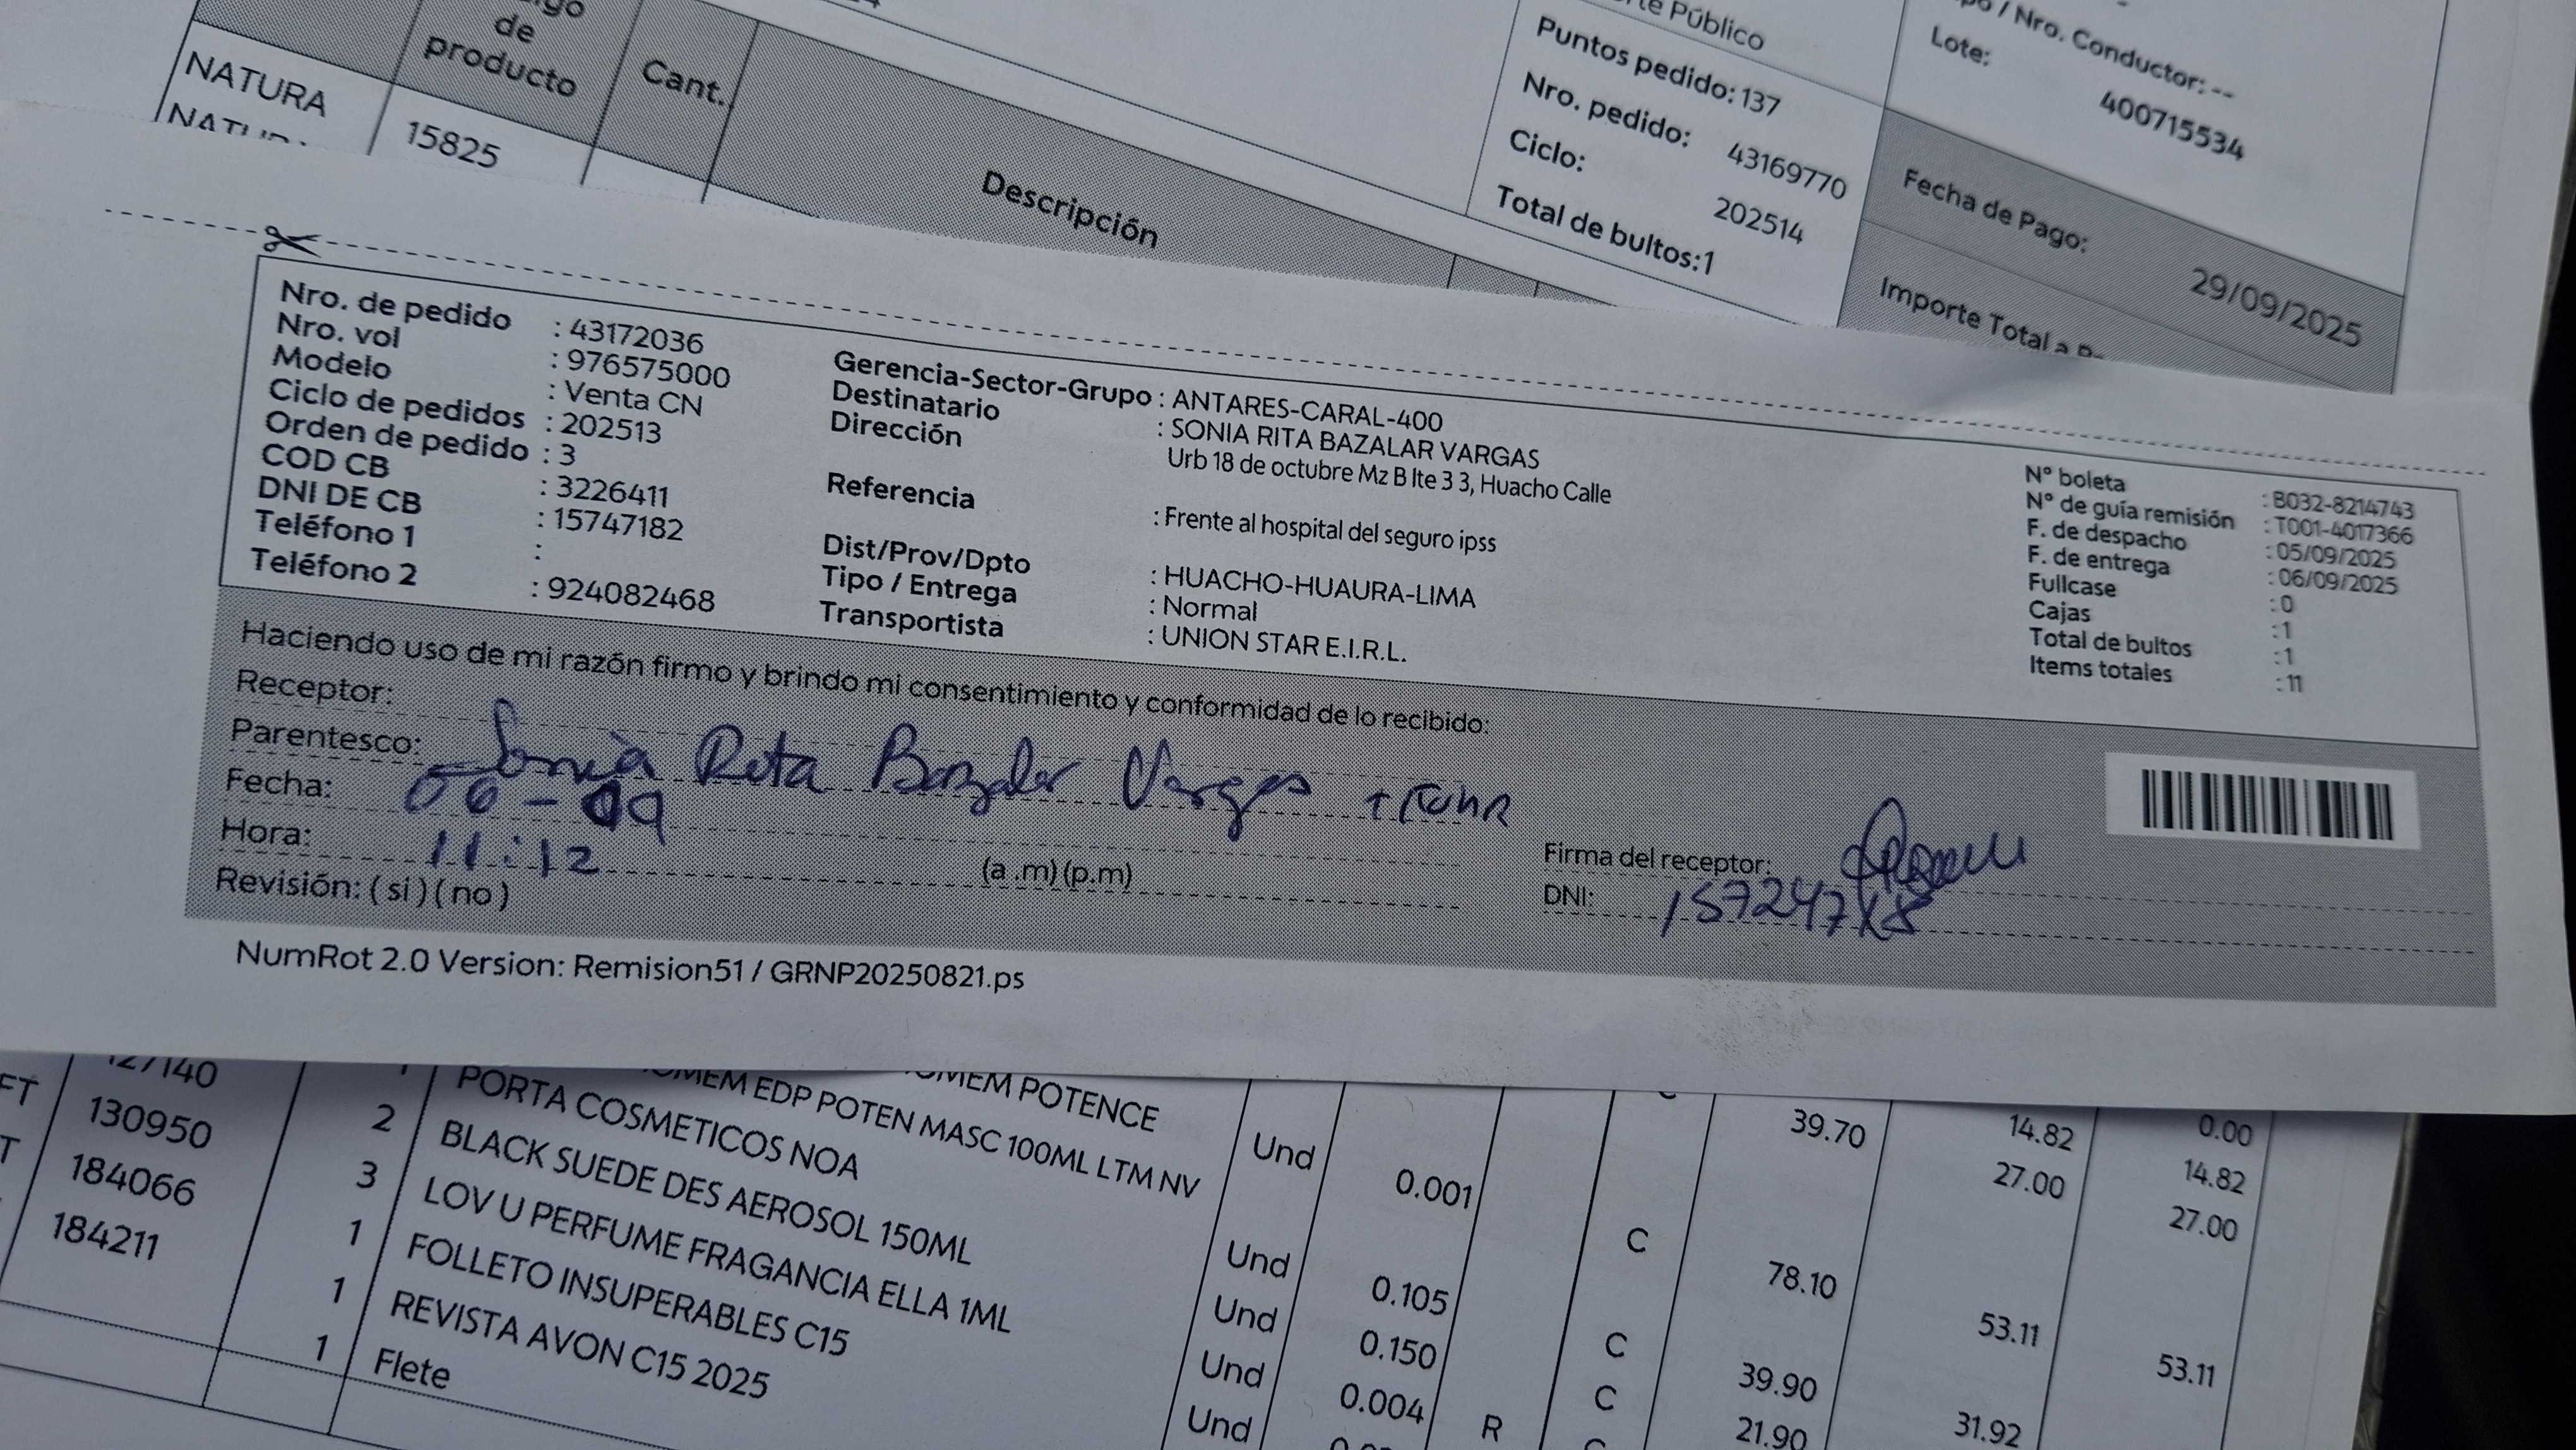 de
producto
Cant.
Descripción
NATURA
15825
Público
Puntos pedido: 137
Nro. pedido: 43169770
Ciclo: 202514
Total de bultos:1
/ Nro. Conductor: --
Lote: 400715534
Fecha de Pago: 29/09/2025
Importe Total a
Nro. de pedido : 43172036
Nro. vol : 976575000
Modelo : Venta CN
Ciclo de pedidos : 202513
Orden de pedido : 3
COD CB : 3226411
DNI DE CB : 15747182
Teléfono 1 :
Teléfono 2 : 924082468
Gerencia-Sector-Grupo : ANTARES-CARAL-400
Destinatario : SONIA RITA BAZALAR VARGAS
Dirección Urb 18 de octubre Mz B lte 3 3, Huacho Calle
Referencia : Frente al hospital del seguro ipss
Dist/Prov/Dpto : HUACHO-HUAURA-LIMA
Tipo / Entrega : Normal
Transportista : UNION STAR E.I.R.L.
N° boleta : B032-8214743
N° de guía remisión : T001-4017366
F. de despacho : 05/09/2025
F. de entrega : 06/09/2025
Fullcase : 0
Cajas : 1
Total de bultos : 1
Items totales : 11
Haciendo uso de mi razón firmo y brindo mi consentimiento y conformidad de lo recibido:
Receptor:
Parentesco: Sonia Rita Bazalar Vargas
Fecha: 06-09
Hora: 11:12 (a .m) (p.m)
Revisión: ( si ) ( no )
Firma del receptor:
DNI:
NumRot 2.0 Version: Remision51 / GRNP20250821.ps
127140
130950
184066
184211
2
3
1
1
1
POTENCE
EDP POTEN MASC 100ML LTM NV
PORTA COSMETICOS NOA
BLACK SUEDE DES AEROSOL 150ML
LOV U PERFUME FRAGANCIA ELLA 1ML
FOLLETO INSUPERABLES C15
REVISTA AVON C15 2025
Flete
Und
Und
Und
Und
Und
0.001
0.105
0.150
0.004
R
C
C
C
39.70
78.10
39.90
21.90
14.82
27.00
53.11
31.92
0.00
14.82
27.00
53.11